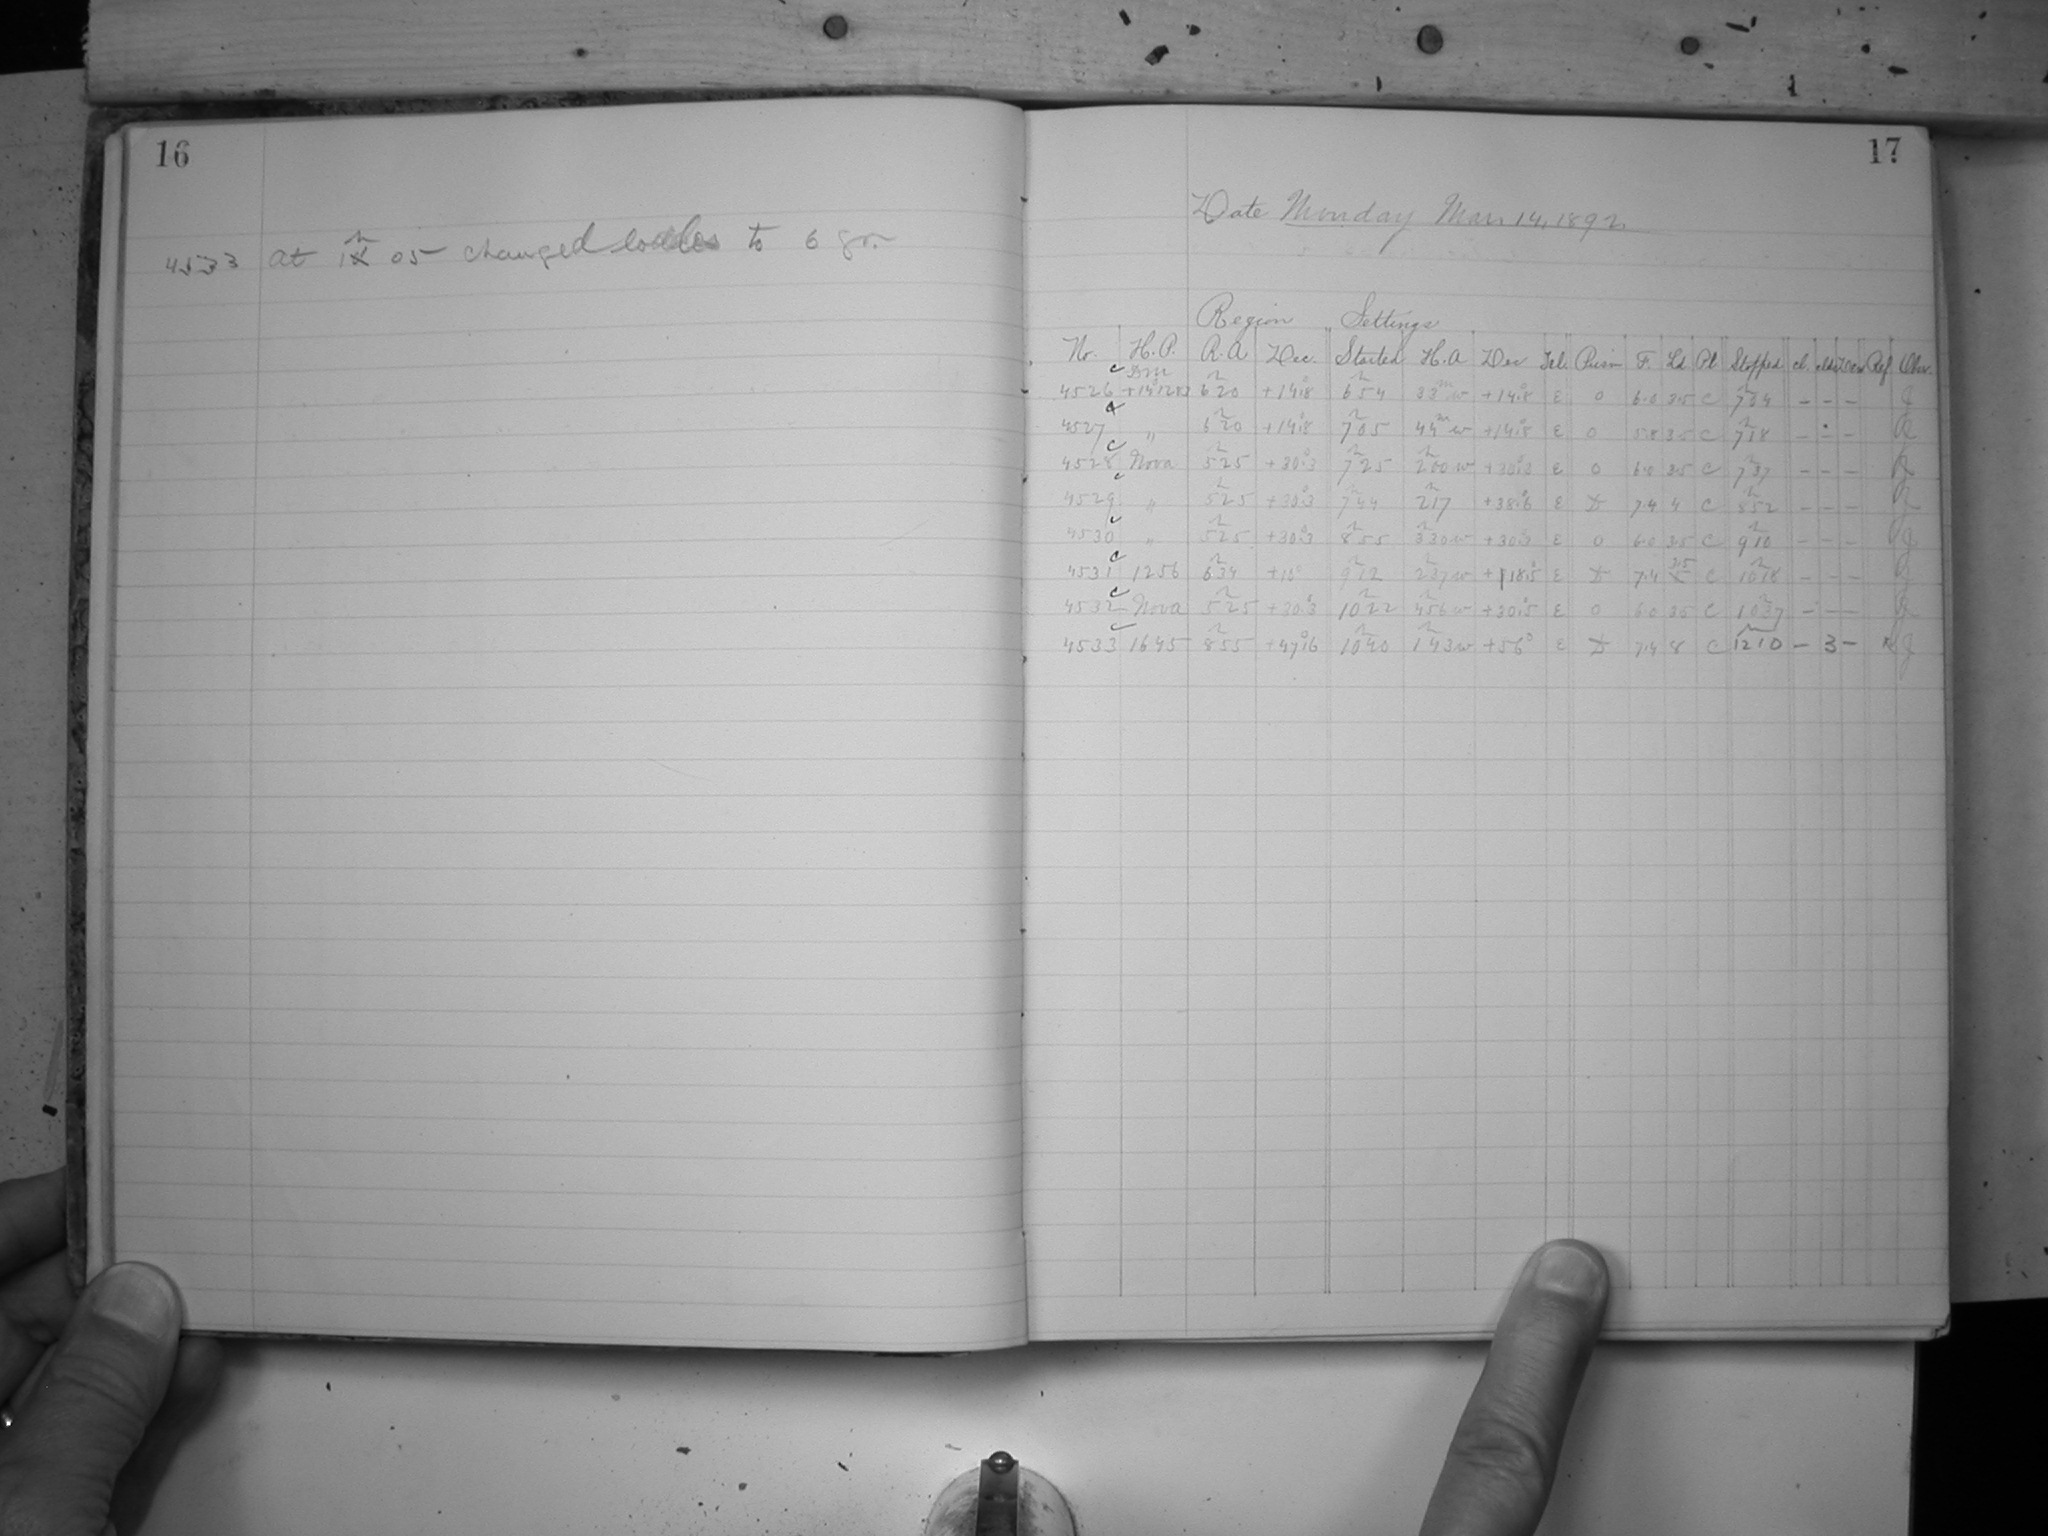 16
4533 at 1X^h 05 changed to 6 gr.
17
Date Monday Mar. 14, 1892.
Region Settings
No. H.P. R.A. Dec. Started H.A Dec Tel. Prism F. Ld Pl. Stopped cl. Ref Obsr.
DM
4526 +14°1283 6^h20 +14°.8 6^h54 33^m w +14°.8 E 0 6.0 3.5 C 7^h04 - - - J
4527 " 6^h20 +14°.8 7^h05 44^m w +14°.8 E 0 5.8 3.5 C 7^h18 - - -
4528 Nova 5^h25 +30°.3 7^h25 2^h00 w +30°.3 E 0 6.0 3.5 C 7^h37 - - -
4529 " 5^h25 +30°.3 7^h44 2^h17 +38°.6 E 7.4 4 C 8^h52 - - -
4530 " 5^h25 +30°.3 8^h55 3^h30 w +30°.3 E 0 6.0 3.5 C 9^h10 - - - J
4531 1256 6^h34 +10° 9^h12 2^h37 w +18°.5 E 7.4 3.5 C 10^h18 - - - J
4532 Nova 5^h25 +30°.3 10^h22 4^h56 w +30°.5 E 0 6.0 3.5 C 10^h37 - - - J
4533 1645 8^h55 +47°.6 10^h40 1^h43 w +56° E 7.4 8 C 12^h10 - 3 - x J